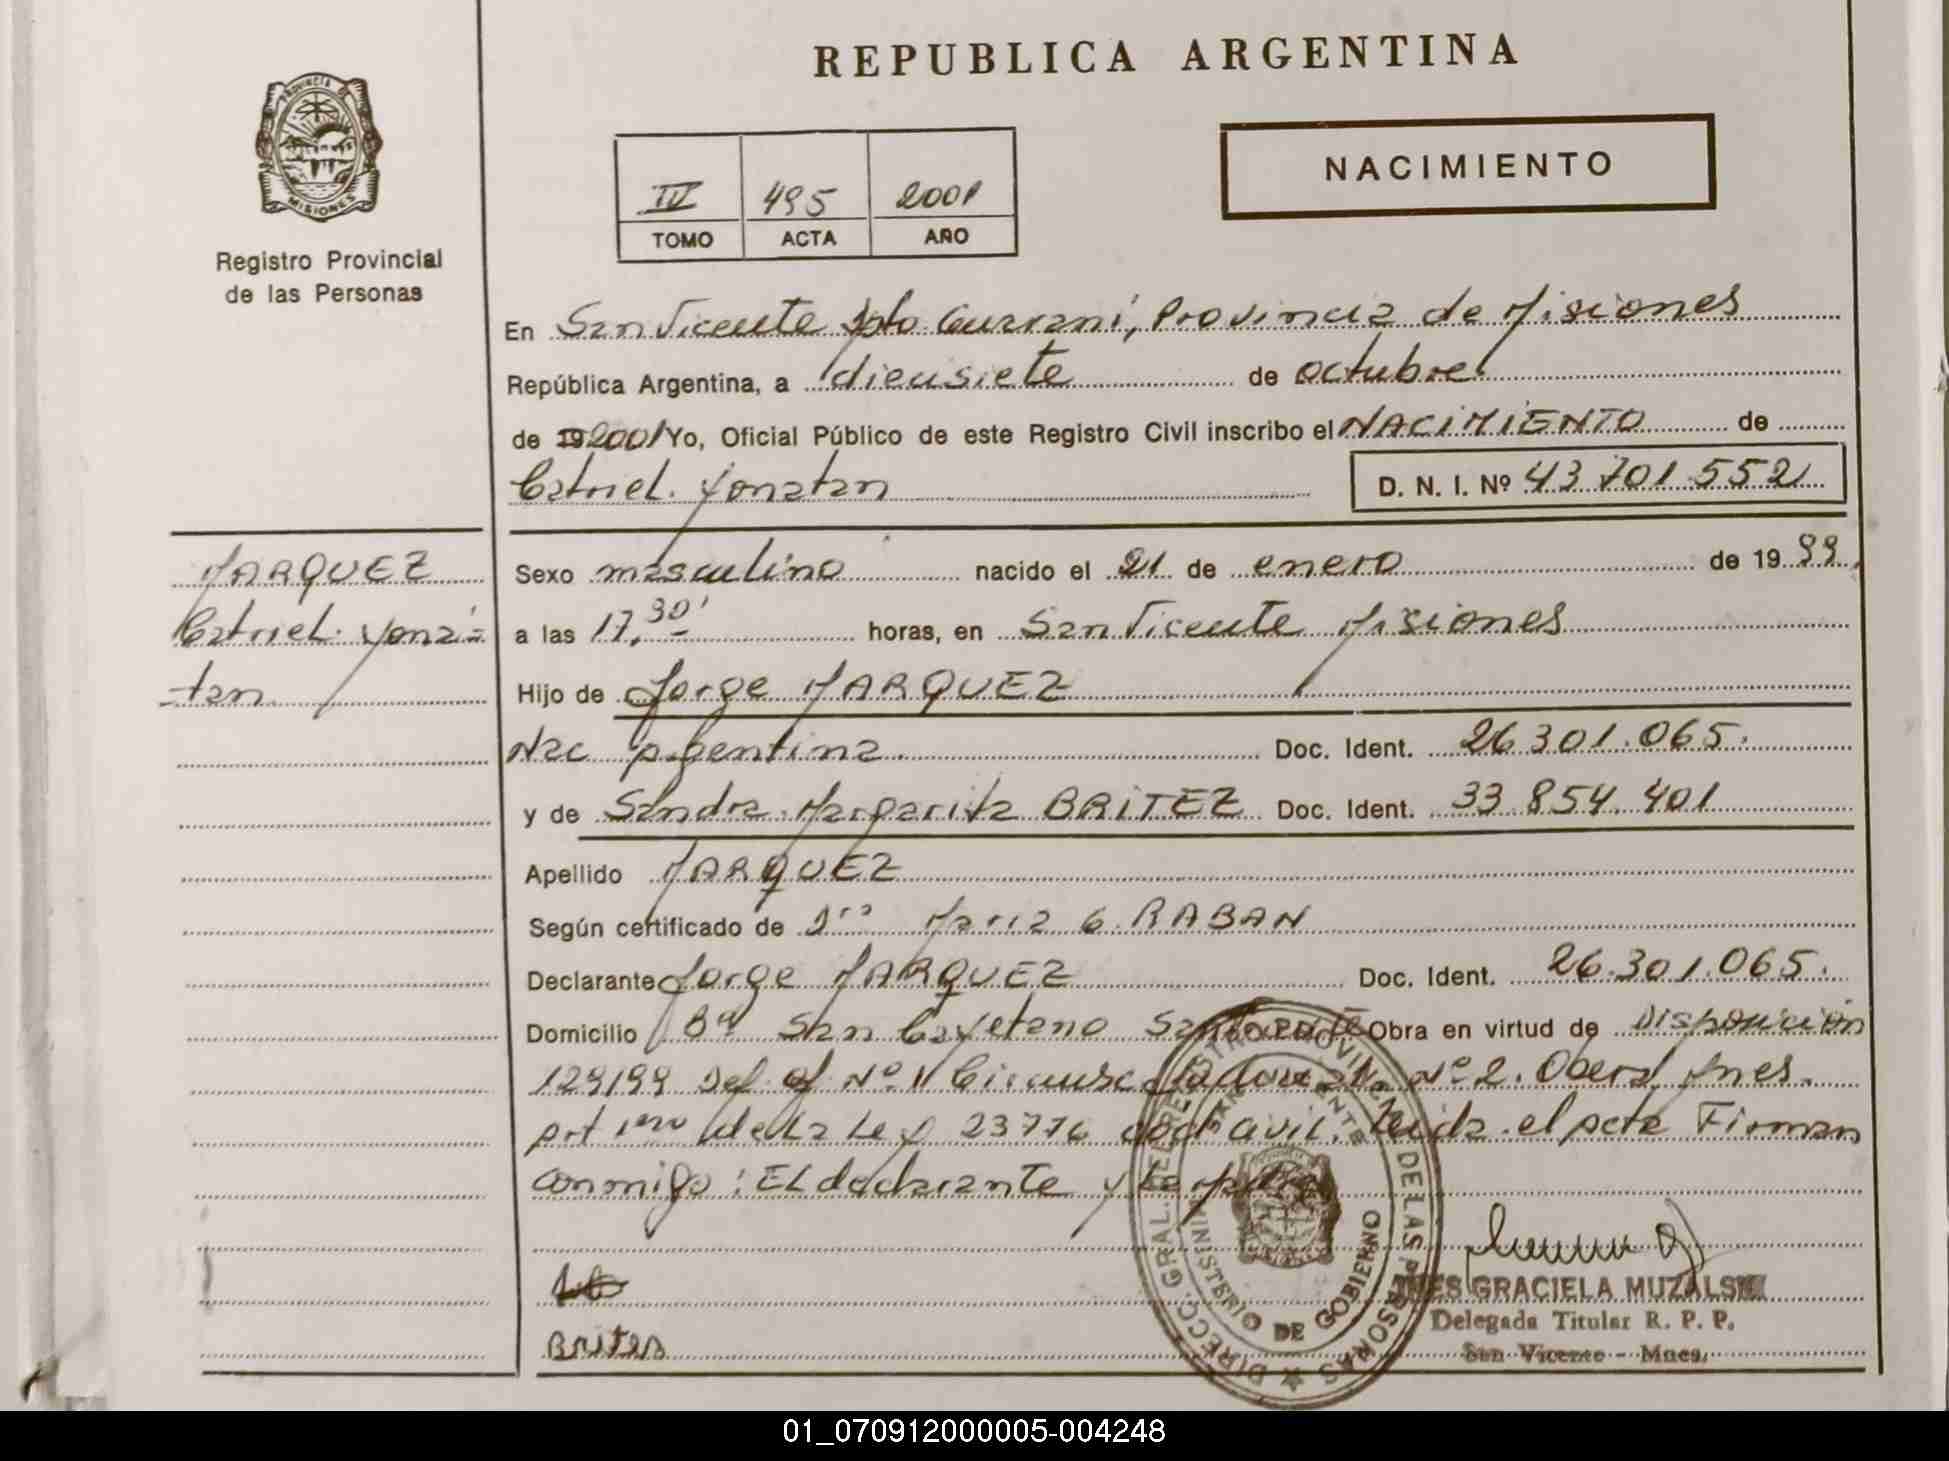 PROVINCIA DE
MISIONES
Registro Provincial
de las Personas
REPUBLICA ARGENTINA
NACIMIENTO
IV 495 2001
TOMO ACTA AÑO
En San Vicente Dpto Guarani, Provincia de Misiones
República Argentina, a diecisiete de octubre
de 19 2001 Yo, Oficial Público de este Registro Civil inscribo el NACIMIENTO de
Catriel Yonatan D. N. I. Nº 43 701 552
MARQUEZ
Catriel Yona-
-tan
Sexo masculino nacido el 21 de enero de 1999
a las 17,30' horas, en San Vicente Misiones
Hijo de Jorge MARQUEZ
Nac Argentina Doc. Ident. 26 301.065.
y de Sandra Margarita BRITEZ Doc. Ident. 33 854 401
Apellido MARQUEZ
Según certificado de Dra Maria G. RABAN
Declarante Jorge MARQUEZ Doc. Ident. 26.301.065.
Domicilio Bº San Cayetano Obra en virtud de Disposición
129/99 Def. Nº 11 Nº 2. Oberá Mnes.
Art 1ro de la Ley 23776 Civil. Leida el acta Firman
conmigo: El declarante y la madre
Brites
DIRECC. GRAL. DEL REGISTRO PROVINC. DE LAS PERSONAS
SAN VICENTE
MINISTERIO DE GOBIERNO
INES GRACIELA MUZALSKI
Delegada Titular R. P. P.
San Vicente - Mnes.
01_070912000005-004248